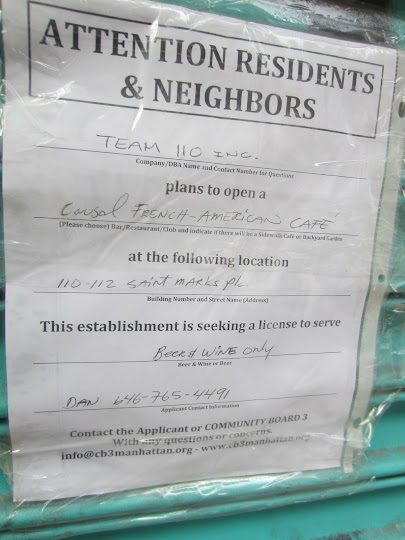 ATTENTION RESIDENTS
& NEIGHBORS
TEAM 110 INC.
Company/DBA Name and Contact Number for Questions
plans to open a
Causal FRENCH-AMERICAN CAFÉ
(Please choose) Bar/Restaurant/Club and indicate if there will be a Sidewalk Café or Backyard Garden
at the following location
110-112 SAINT MARKS PLC.
Building Number and Street Name (Address)
This establishment is seeking a license to serve
BEER & WINE ONLY
Beer & Wine or Beer
DAN 646-765-4491
Applicant Contact Information
Contact the Applicant or COMMUNITY BOARD 3
With any questions or concerns.
info@cb3manhattan.org - www.cb3manhattan.org